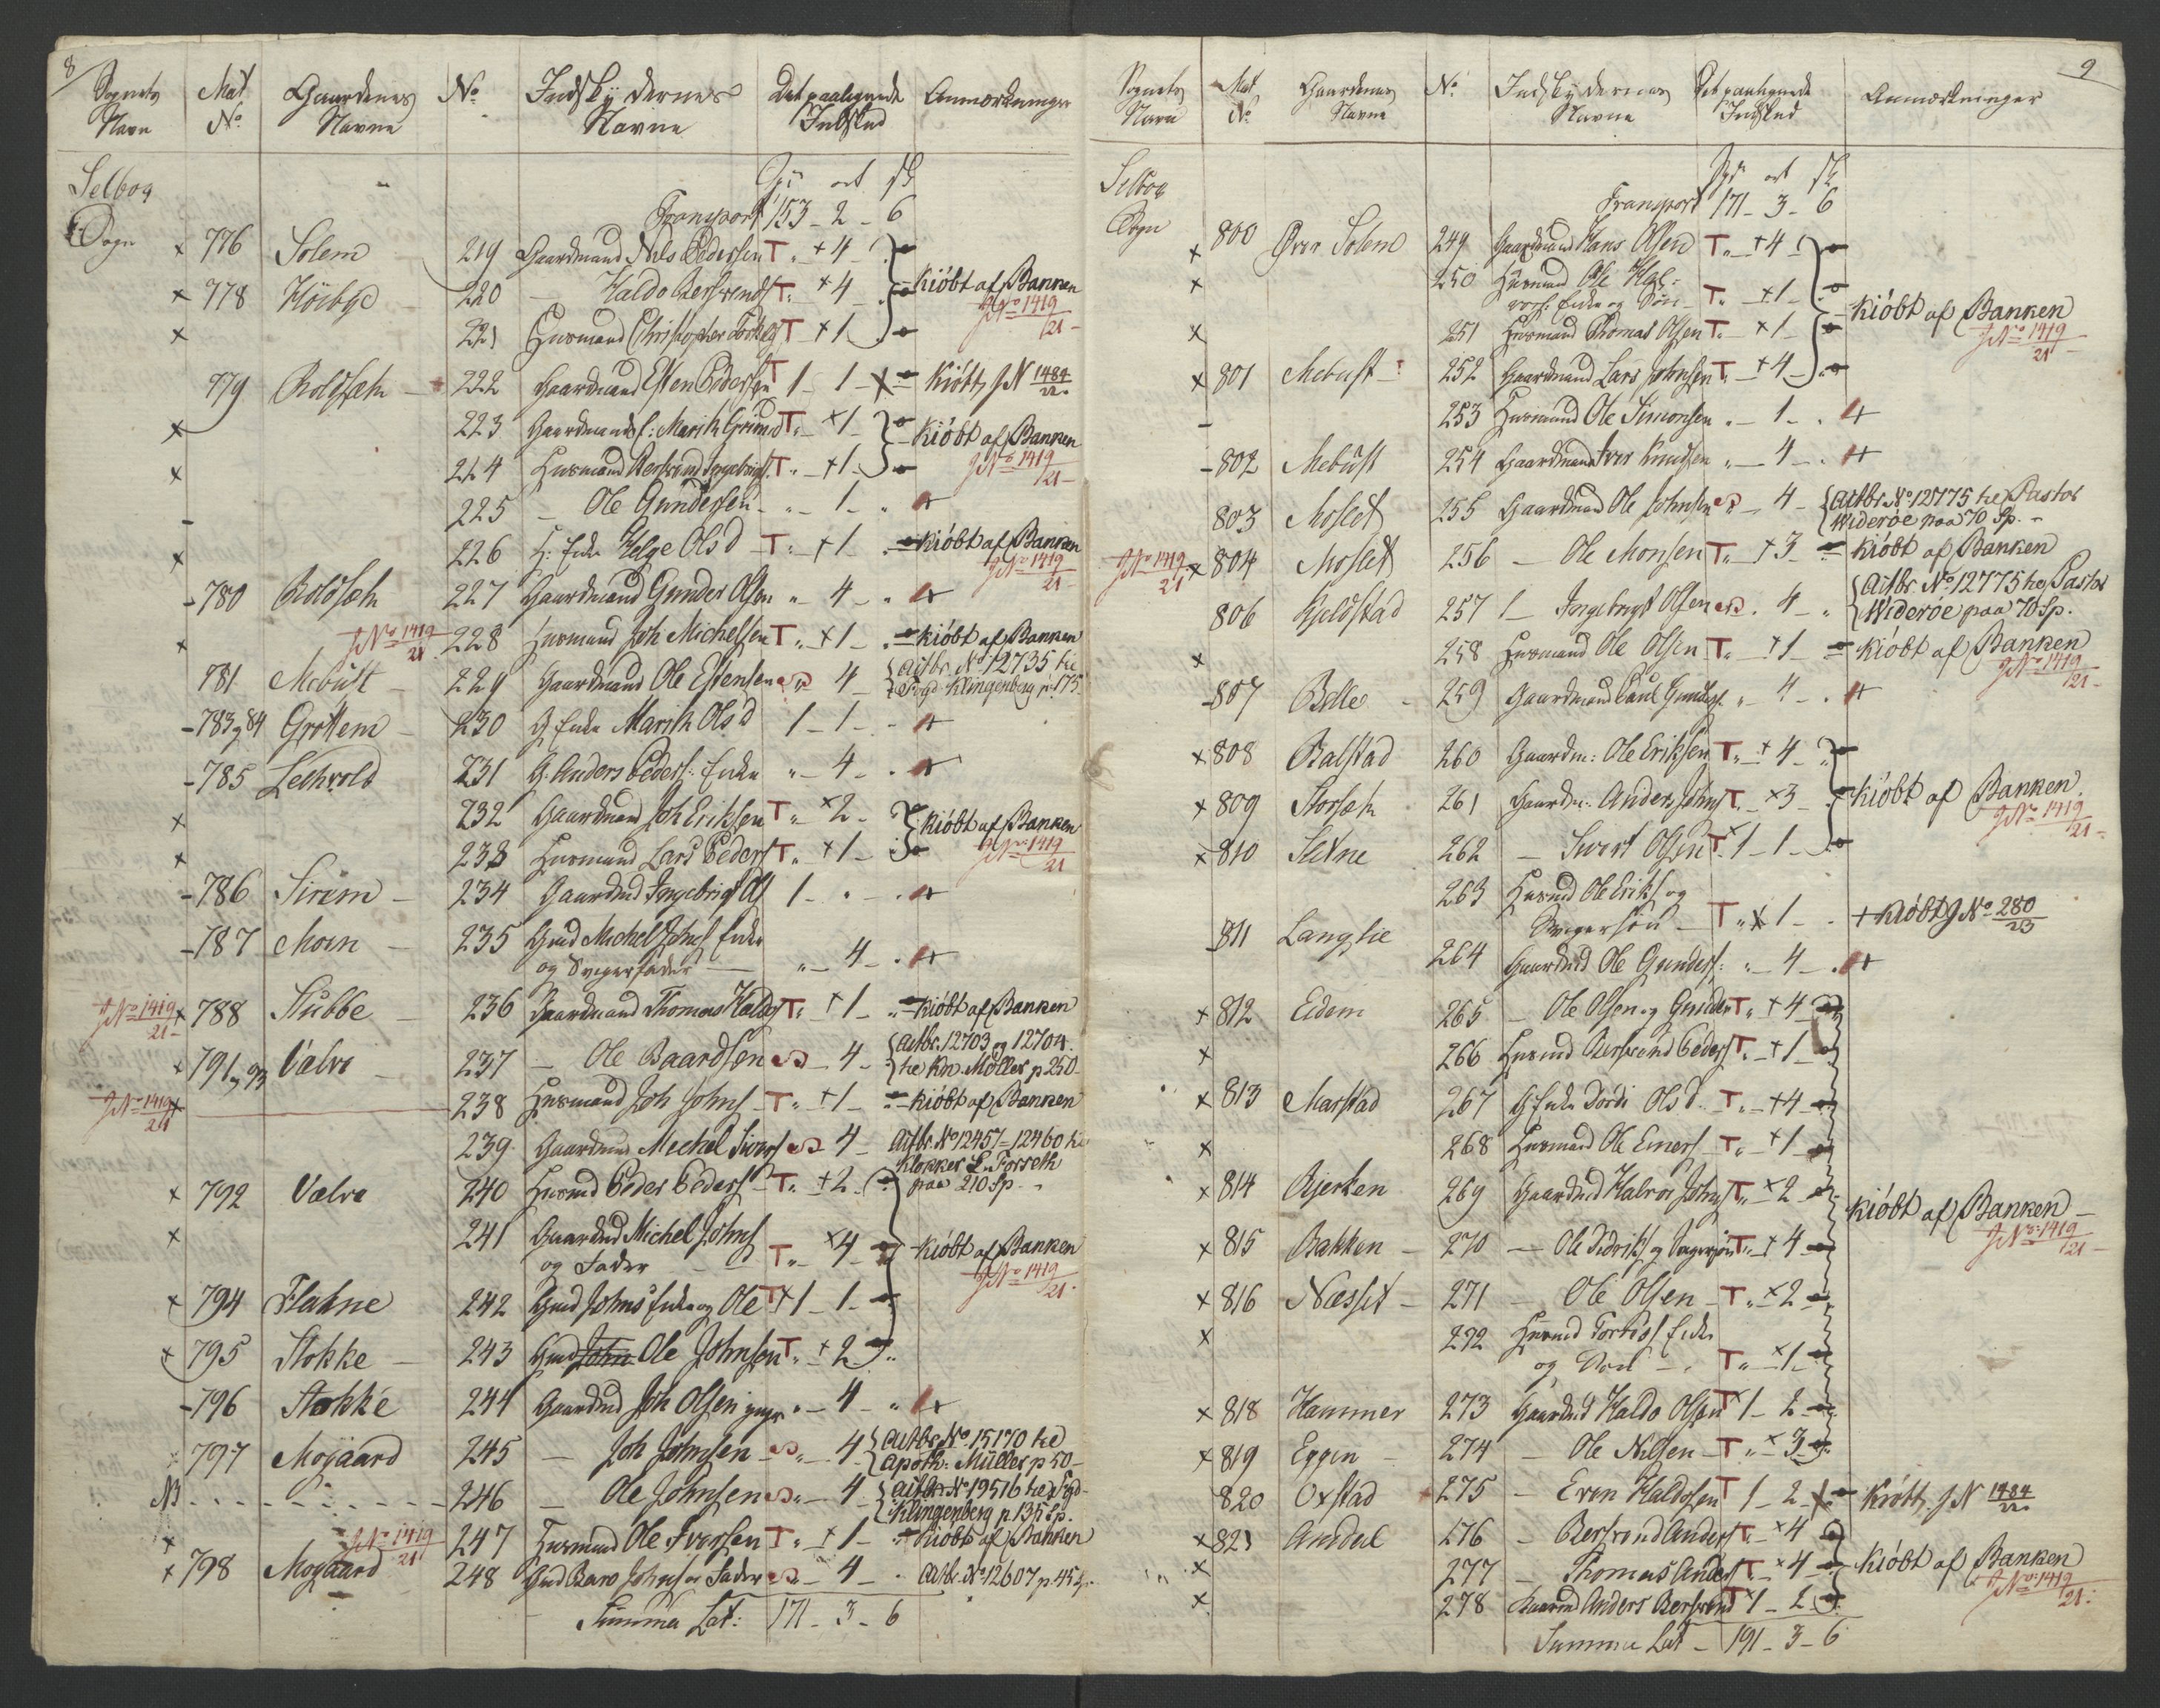 8
Sognets Navn | Mat No | Gaardenes Navne | No | Indskydernes Navne | Det paalignede Indskud | Anmærkninger
Selboe Sogn | Spd ort sk
Transport 153 - 2 - 6
x 776 Solem 219 Gaardmand Nils Pedersen T " +4 -
x 778 Höibye 220 — Haldo Bersvends T " +4 - Kióbt af Banken
JNo 1419/21
x 221 Huusmand Christopher T +1 -
779 Roldsæth 222 Gaardmand Esten Pedersen T 1 - 1 - Kióbt JN 1484/22
x 223 Gaardmands E: Marith Gunnd T " +1 - Kióbt af Banken
x 224 Huusmand Bersvend Ingebrigts. T " +1 - JNo 1419/21
- 225 — Ole Gundersen " - 1 - "
x 226 H: Enke Helge Olsd T " +1 - Kióbt af Banken
JNo 1419/21
- 780 Rolsæth 227 Gaardmand Gunder Olsen " 4 - "
x JNo 1419/21 228 Huusmand Joh Michelsen T " +1 - Kióbt af Banken
781 Mebust 229 Gaardmand Ole Estensen " 4 Actbr. No 12735 he
Fogd Klingenberg p. 175
- 783 & 84 Grottem 230 G Enke Marith Olsd 1 - 1 -
- 785 Lechvold 231 G. Anders Peders: Enke " - 4 -
x 232 Gaardmand Joh Eriksen T " x2 - Kióbt af Banken
x 233 Huusmand Lars Peders T " +1 - JNo 1419/21
- 786 Sirem 234 Gaardmd Ingebrigt Ols 1 - " -
- 787 Moen 235 Gmd Michel Johns Enke
og Svigerfader " - 4 -
JNo 1419/21 x 788 Stubbe 236 Gaardmand Thomas Haldos T " +1 - Kióbt af Banken
x 791 & 93 Valve 237 — Ole Baardsen " - 4 - Actbr. 12703 og 12704
he Km Möller p 250
JNo 1419/21 x 238 Huusmand Joh Johns T " +1 - Kióbt af Banken
239 Gaardmand Mechel Sivers " 4 - Actbr. No 12457 = 12460 he
Klokker L. Forseth
x 792 Valve 240 Huusmd Peder Peders T " +2 - paa 210 Sp.
x 241 Gaardmd Michel Johns
og Fader T " x4 - Kióbt af Banken
JNo 1419/21
x 794 Flakne 242 Gmd Johns Enke og Ole T x1 - 1 -
x 795 Stokke 243 Gmd John Ole Johnsen T " +2 "
- 796 Stokke 244 Gaardmd Joh Olsen " - 4 - "
797 Mogaard 245 — Joh Johnsen " - 4 Actbr. No 15170 he
Apoth: Müller p 50 -
NB 246 — Ole Johnsen " - 4 Actbr. No 19516 he Fgd
Klingenberg p. 135 Sp.
x JNo 1419/21 247 Huusmand Ole Iversen T " +1 - Kióbt af Banken
x 798 Mogaard 248 Gmd Baro Johns og Fader " - 4 - Actbr. No 12607 p. 45 Sp.
Summa Lat: 171 - 3 - 6
9
Sognets Navn | Mat No | Gaardenes Navne | No | Indskydernes Navne | Det paalignede Indskud | Anmærkninger
Selboe Sogn | Spd ort sk
Transport 171 - 3 - 6
x 800 Över Solem 249 Gaardmand Hans Olsen T " +4 -
x 250 Huusmd Ole Hal-
vors: Enke og Sön T " x1 - Kióbt af Banken
x 251 Huusmand Thomas Olsen T " x1 - JNo 1419/21
x 801 Mebust 252 Gaardmand Lars Johnsen T " +4 -
- 253 Huusmand Ole Simonsen " - 1 - "
- 802 Mebust 254 Gaardmand Iver Knudsen " - 4 - "
803 Moslet 255 Gaardmand Ole Johnsen " 4 - Actbr. No 12775 he Pastor
Wideröe paa 70 Sp. -
JNo 1419/21 x 804 Moslet 256 — Ole Monsen T " +3 Kióbt af Banken
806 Kjeldstad 257 — Ingebrigt Olsen " 4 - " Actbr. No 12775 he Pastor
Wideröe paa 70 Sp.
x 258 Huusmand Ole Olsen T " +1 Kióbt af Banken
JNo 1419/21
- 807 Balle 259 Gaardmand Paul Gunders. " 4 - "
x 808 Balstad 260 Gaardm: Ole Eriksen T " +4 -
x 809 Storsæth 261 Gaardm: Anders Johns T " x3 - Kióbt af Banken
JNo 1419/21
x 810 Slitne 262 — Sivert Olsen T x1 - 1 -
263 Huusmd Ole Eriks og
Svigersön T " x1 - + Kióbt JNo 280/23
- 811 Langlie 264 Gaardmd Ole Gunders: " - 4 - "
x 812 Eidem 265 — Ole Olsen og Gunder T " +4
x 266 Huusmd Bersvend Peders T " +1
x 813 Marstad 267 G Enke Dordi Olsd T " +4
x 268 Huusmand Ole Einers T " +1
x 814 Bjerken 269 Gaardmd Halvor Johns T " x2 Kióbt af Banken -
x 815 Bakken 270 — Ole Didriks og Svigersön T " +4 JNo 1419/21
x 816 Næsset 271 — Ole Olsen T " x2
x 272 Huusmd Torbiös Enke
og T " x1
x 818 Hammer 273 Gaardmd Haldo Olsen T x1 - 2
x 819 Eggen 274 — Ole Nilsen T " x3
820 Oxstad 275 — Even Haldosen T 1 - 2 Kióbt. JN 1484/22
x 821 Amdal 276 — Bersvend Anders T " x4
x 277 — Thomas Anders T " x4 Kióbt af Banken
x 278 Gaardmd Anders Bersvend T x1 - 2 JNo 1419/21
Summa Lat - 191 - 3 - 6